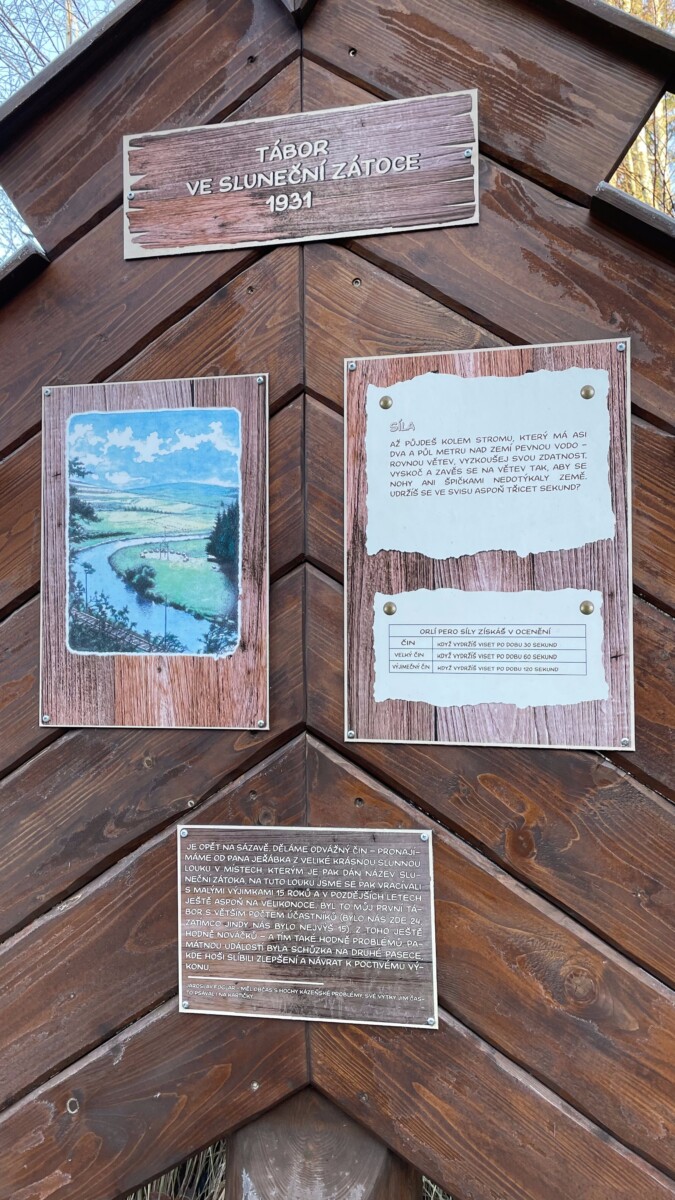 TÁBOR
VE SLUNEČNÍ ZÁTOCE
1931
SÍLA
AŽ PŮJDEŠ KOLEM STROMU, KTERÝ MÁ ASI
DVA A PŮL METRU NAD ZEMÍ PEVNOU VODO –
ROVNOU VĚTEV, VYZKOUŠEJ SVOU ZDATNOST.
VYSKOČ A ZAVĚS SE NA VĚTEV TAK, ABY SE
NOHY ANI ŠPIČKAMI NEDOTÝKALY ZEMĚ.
UDRŽÍŠ SE VE SVISU ASPOŇ TŘICET SEKUND?
ORLÍ PERO SÍLY ZÍSKÁŠ V OCENĚNÍ
ČIN KDYŽ VYDRŽÍŠ VISET PO DOBU 30 SEKUND
VELKÝ ČIN KDYŽ VYDRŽÍŠ VISET PO DOBU 60 SEKUND
VÝJIMEČNÝ ČIN KDYŽ VYDRŽÍŠ VISET PO DOBU 120 SEKUND
JE OPĚT NA SÁZAVĚ. DĚLÁME ODVÁŽNÝ ČIN – PRONAJÍ-
MÁME OD PANA JEŘÁBKA Z VELIKÉ KRÁSNOU SLUNNOU
LOUKU V MÍSTECH, KTERÝM JE PAK DÁN NÁZEV SLU-
NEČNÍ ZÁTOKA. NA TUTO LOUKU JSME SE PAK VRACÍVALI
S MALÝMI VÝJIMKAMI 15 ROKŮ A V POZDĚJŠÍCH LETECH
JEŠTĚ ASPOŇ NA VELIKONOCE. BYL TO MŮJ PRVNÍ TÁ-
BOR S VĚTŠÍM POČTEM ÚČASTNÍKŮ (BYLO NÁS ZDE 24,
ZATÍMCO JINDY NÁS BYLO NEJVÝŠ 15). Z TOHO JEŠTĚ
HODNĚ NOVÁČKŮ – A TÍM TAKÉ HODNĚ PROBLÉMŮ. PA-
MÁTNOU UDÁLOSTÍ BYLA SCHŮZKA NA DRUHÉ PASECE,
KDE HOŠI SLÍBILI ZLEPŠENÍ A NÁVRAT K POCTIVÉMU VÝ-
KONU.
JAROSLAV FOGLAR – MĚL OBČAS S HOCHY KÁZEŇSKÉ PROBLÉMY. SVÉ VÝTKY JIM ČAS-
TO PSÁVAL I NA KARTIČKY.